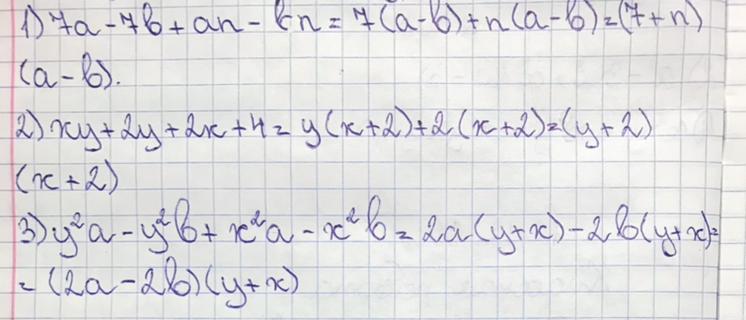 1) 7a - 7b + an - bn = 7(a-b) + n(a-b) = (7+n)
(a-b).
2) xy + 2y + 2x + 4 = y(x+2) + 2(x+2) = (y+2)
(x+2)
3) y²a - y²b + x²a - x²b = 2a(y+x) - 2b(y+x) =
= (2a - 2b)(y+x)